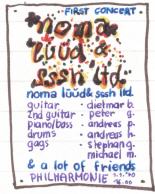 FIRST CONCERT
noma
lüüd &
sssh ltd.
noma lüüd & sssh ltd.
guitar - dietmar b.
2nd guitar - peter g.
piano/bass - andreas p.
drums - andreas h.
gags - stephan g.
michael m.
& a lot of friends
PHILHARMONIE